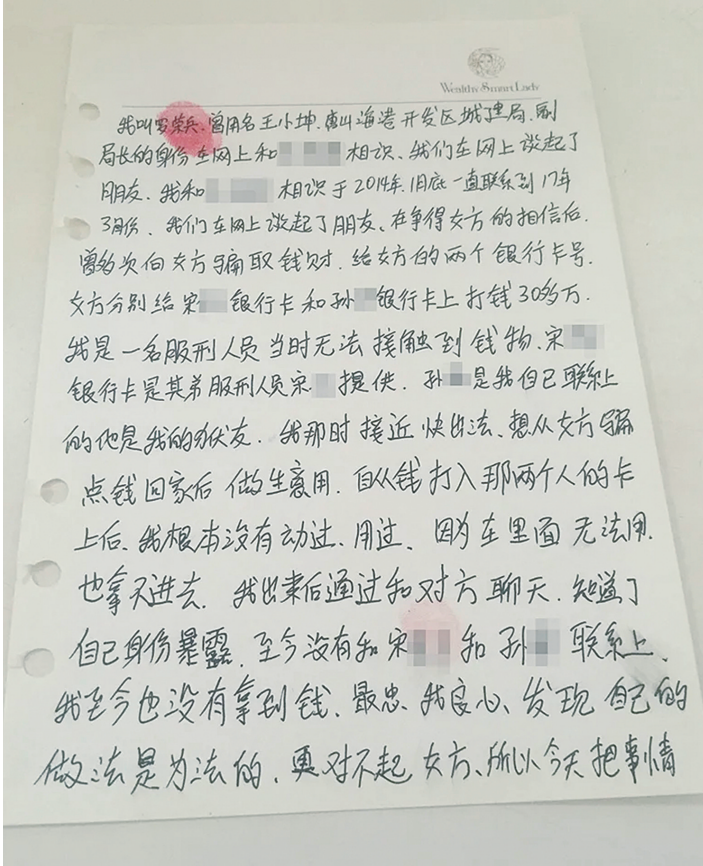 Wealthy Smart Lady
我叫罗荣兵.曾用名王小坤.唐山海港开发区城建局.副
局长的身份在网上和 相识、我们在网上谈起了
朋友.我和 相识于2014年.1月底一直联系到17年
3月份.我们在网上谈起了朋友、在争得女方的相信后.
曾多次向女方骗取钱财.给女方的两个银行卡号.
女方分别给宋 银行卡和孙 银行卡上打钱30多万.
我是一名服刑人员当时无法接触到钱物.宋
银行卡是其弟服刑人员宋 提供.孙 是我自己联系上
的他是我的狱友.我那时接近快出法、想从女方骗
点钱回家后做生意用.自从钱打入那两个人的卡
上后、我根本没有动过、用过、因为在里面无法用.
也拿不进去.我出来后通过和对方聊天.知道了
自己身份暴露.至今没有和宋 和孙 联系上.
我至今也没有拿到钱、最忠、我良心、发现自己的
做法是为法的.更对不起女方、所以今天把事情